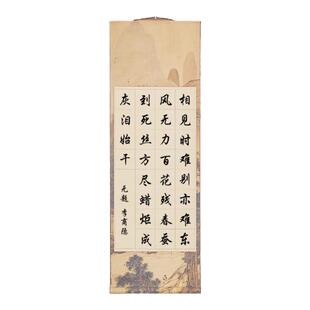 相见时难别亦难东
风无力百花残春蚕
到死丝方尽蜡炬成
灰泪始干
无题 李商隐